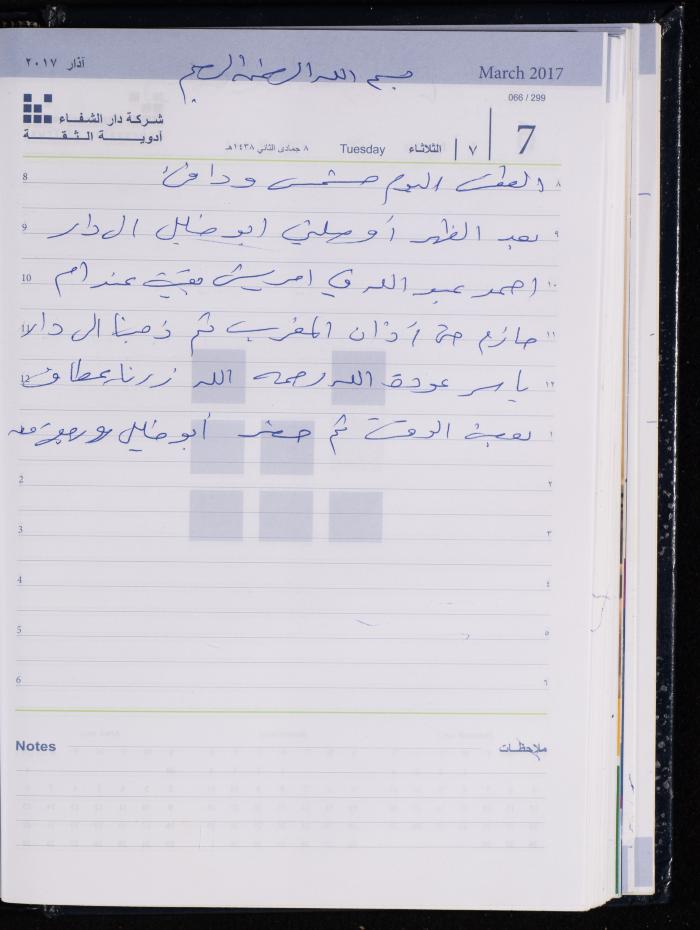 آذار ٢٠١٧
بسم الله الرحمن الرحيم
March 2017
066 / 299
شركة دار الشفاء
أدوية الثقة
٨ جمادى الثاني ١٤٣٨هـ
Tuesday
الثلاثاء
٧
7
8 الطقس اليوم مشمس ودافئ ٨
9 بعد الظهر أوصلني ابو خليل الى دار ٩
10 احمد عبد الله في بقيت عند ام ١٠
11 حازم حتى آذان المغرب ثم ذهبنا الى دار ١١
12 ياسر عودة الله رحمه الله زرنا ١٢
بقية الوقت ثم حضر أبو خليل ١
2 ٢
3 ٣
4 ٤
5 ٥
6 ٦
Notes ملاحظات